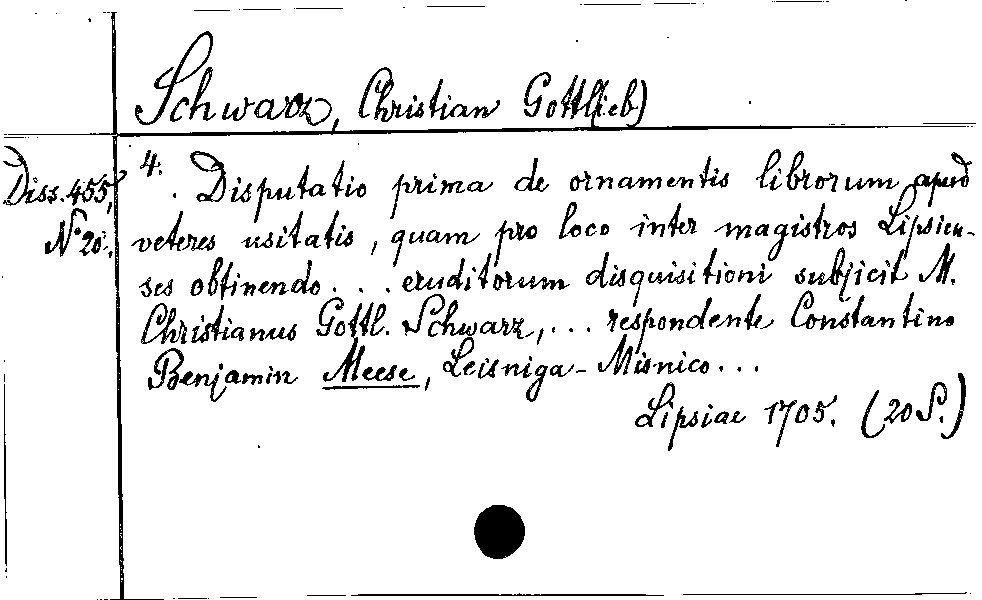 Schwarz, Christian Gottlieb)
Diss. 455,
N° 20.
4.
. Disputatio prima de ornamentis librorum apud
veteres usitatis, quam pro loco inter magistros Lipsien-
ses obtinendo . . . eruditorum disquisitioni subjicit M.
Christianus Gottl. Schwarz, ... respondente Constantino
Benjamin Meese, Leisniga-Misnico...
Lipsiae 1705. (20 S.)